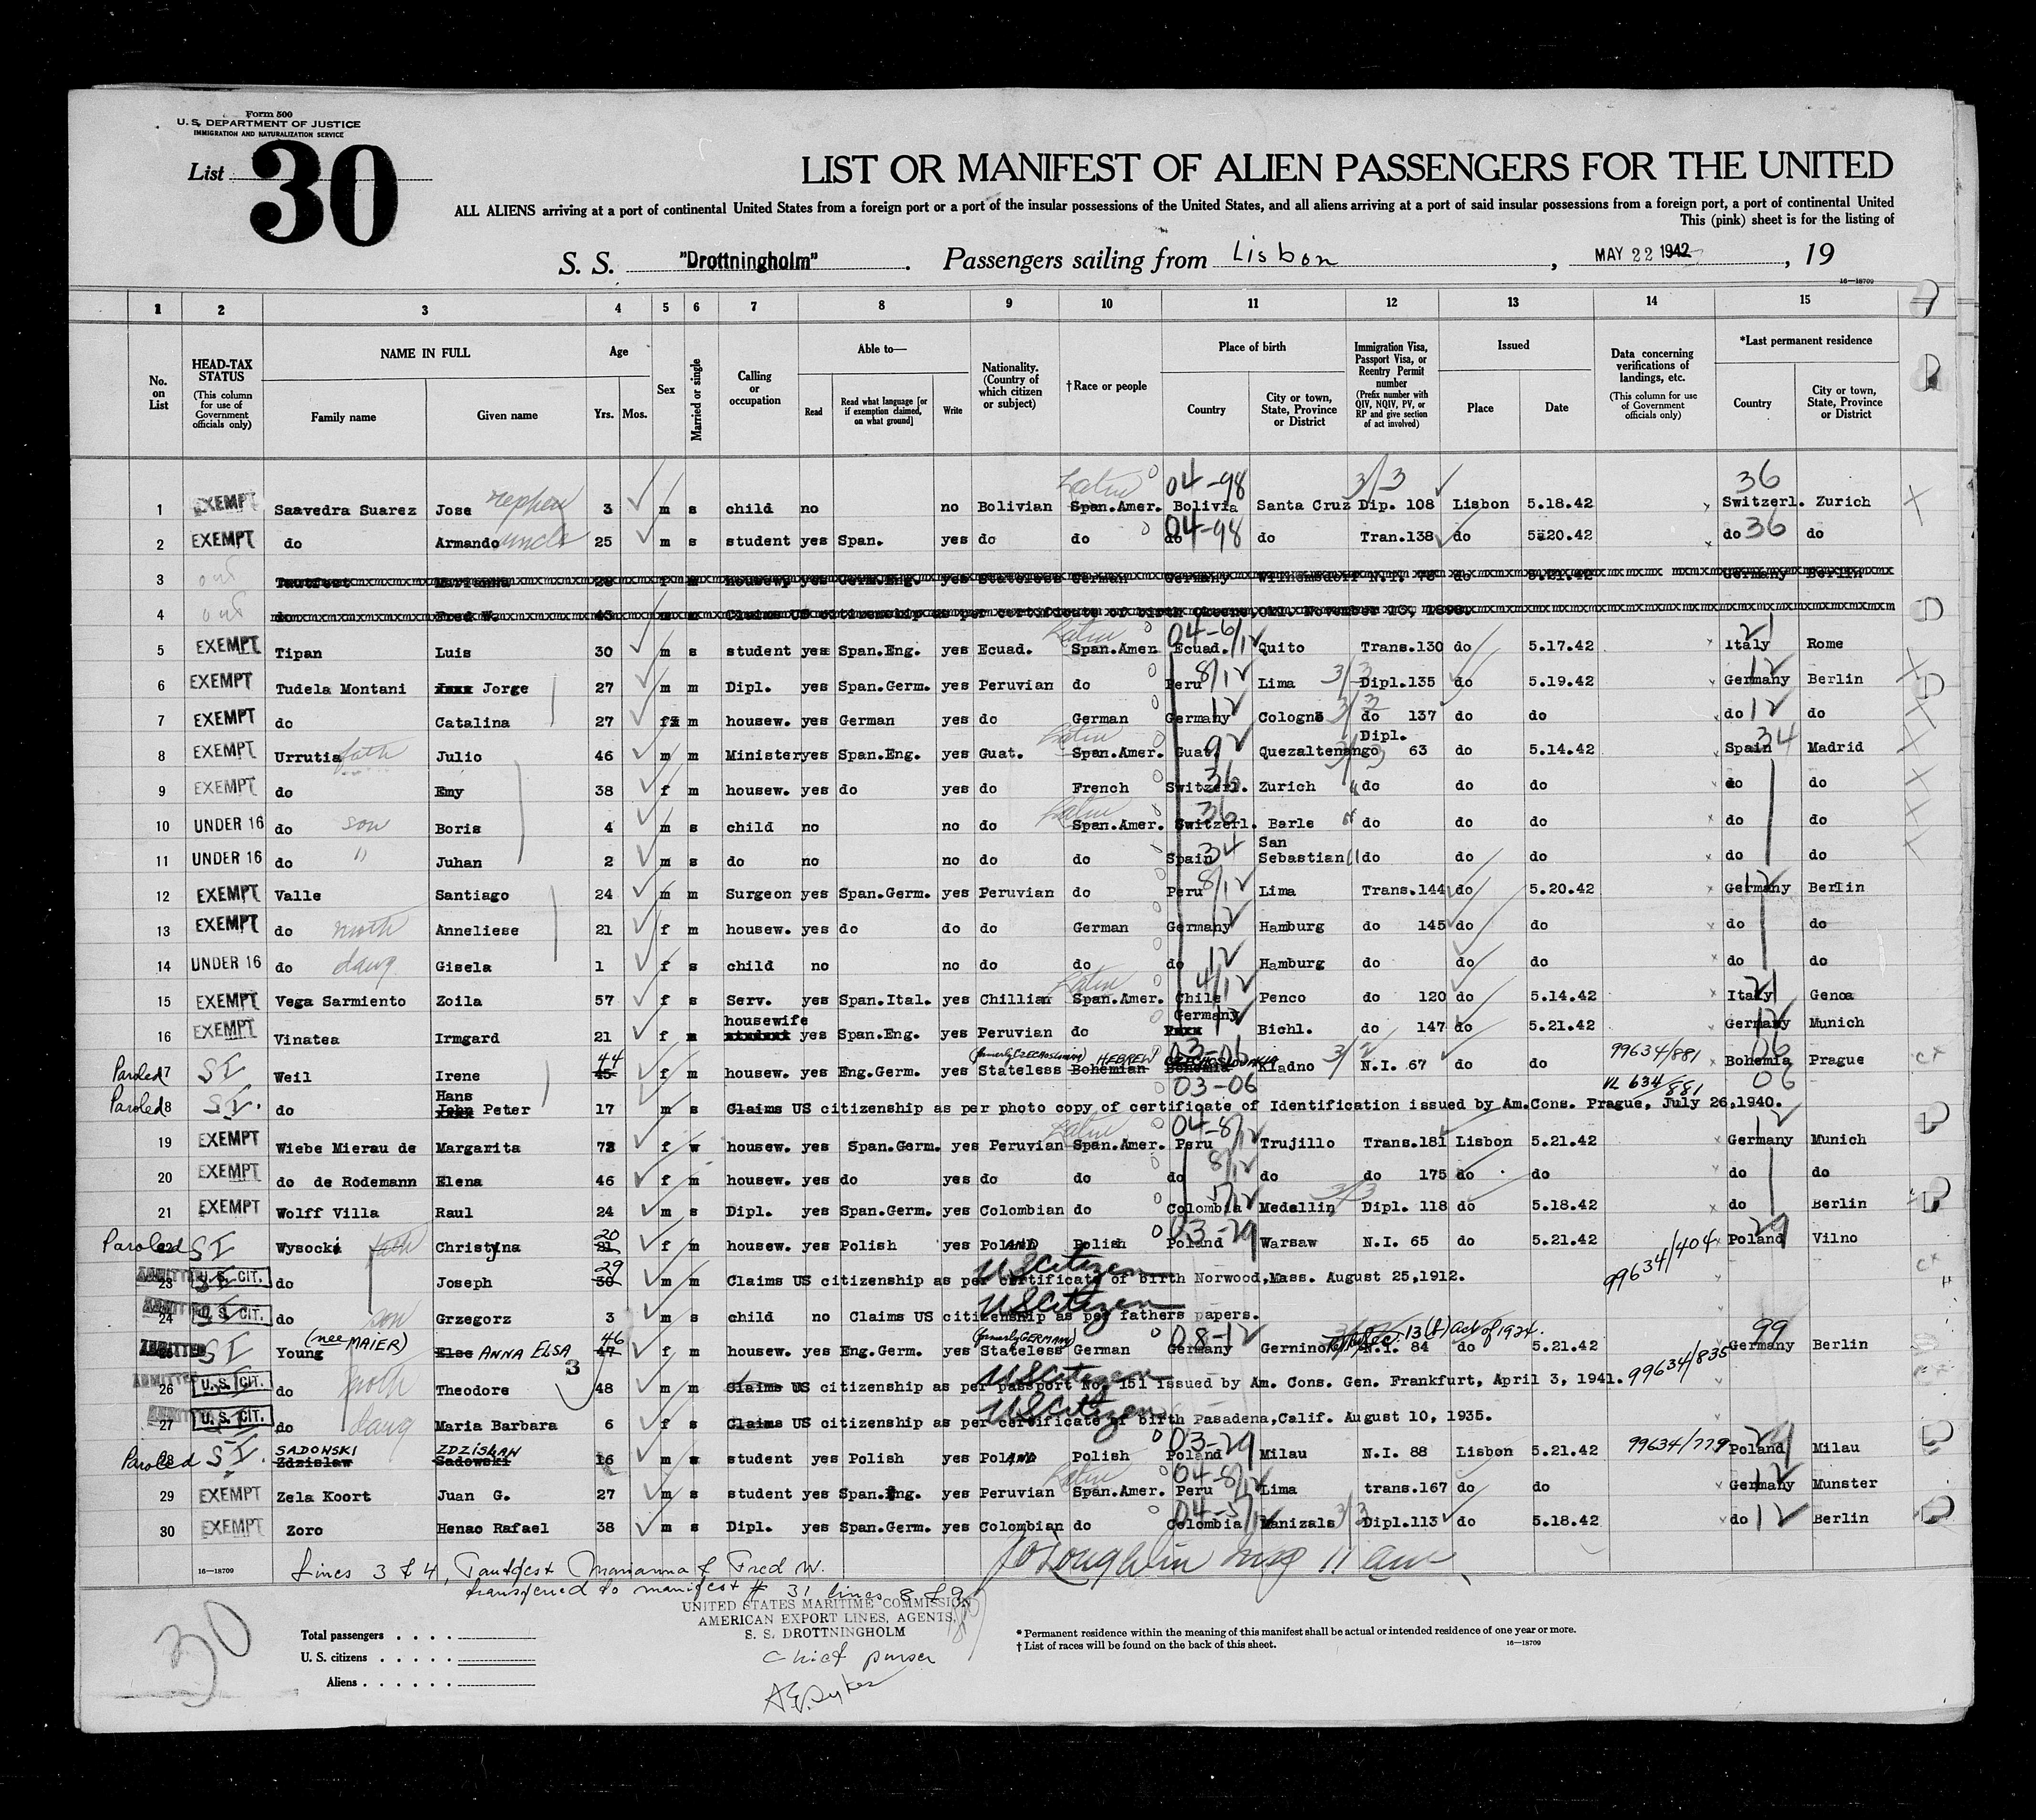 Form 500
U. S. DEPARTMENT OF JUSTICE
IMMIGRATION AND NATURALIZATION SERVICE
List 30
LIST OR MANIFEST OF ALIEN PASSENGERS FOR THE UNITED
ALL ALIENS arriving at a port of continental United States from a foreign port or a port of the insular possessions of the United States, and all aliens arriving at a port of said insular possessions from a foreign port, a port of continental United
This (pink) sheet is for the listing of
S. S. "Drottningholm". Passengers sailing from Lisbon, MAY 22 1942, 19
16—18709
1 2 3 4 5 6 7 8 9 10 11 12 13 14 15
No. on List
HEAD-TAX STATUS (This column for use of Government officials only)
NAME IN FULL Family name Given name
Age Yrs. Mos.
Sex
Married or single
Calling or occupation
Able to— Read Read what language [or if exemption claimed, on what ground] Write
Nationality. (Country of which citizen or subject)
†Race or people
Place of birth Country City or town, State, Province or District
Immigration Visa, Passport Visa, or Reentry Permit number (Prefix number with QIV, NQIV, PV, or RP and give section of act involved)
Issued Place Date
Data concerning verifications of landings, etc. (This column for use of Government officials only)
*Last permanent residence Country City or town, State, Province or District
Latin 04-98 3/3 36
1 EXEMPT Saavedra Suarez Jose nephew 3 m s child no no Bolivian Span.Amer. Bolivia Santa Cruz Dip. 108 Lisbon 5.18.42 Switzerl. Zurich
2 EXEMPT do Armando uncle 25 m s student yes Span. yes do do do 04-98 do Tran.138 do 5520.42 do 36 do
3 out
4 out do Fred W. 43 m m Claims US citizenship as per certificate of birth November 13, 1898.
Latin 04-6/12 21
5 EXEMPT Tipan Luis 30 m s student yes Span.Eng. yes Ecuad. Span.Amen Ecuad. Quito Trans.130 do 5.17.42 Italy Rome
6 EXEMPT Tudela Montani Jorge 27 m m Dipl. yes Span.Germ. yes Peruvian do Peru 8/12 Lima 3/3 Dipl.135 do 5.19.42 Germany 12 Berlin
7 EXEMPT do Catalina 27 f m housew. yes German yes do German Germany 12 Cologne 3/3 do 137 do do do 12 do
8 EXEMPT Urrutia fath Julio 46 m m Minister yes Span.Eng. yes Guat. Latin Span.Amer. Guat. 92 Quezaltenango Dipl. 63 do 5.14.42 Spain 34 Madrid
9 EXEMPT do Emy 38 f m housew. yes do yes do French Switzerl. 36 Zurich do do do do do
10 UNDER 16 do son Boris 4 m s child no no do Latin Span.Amer. Switzerl. 36 Barle do do do do do
11 UNDER 16 do " Juhan 2 m s do no no do do Spain 34 San Sebastian do do do do do
12 EXEMPT Valle Santiago 24 m m Surgeon yes Span.Germ. yes Peruvian do Peru 8/12 Lima Trans.144 do 5.20.42 Germany 12 Berlin
13 EXEMPT do moth Anneliese 21 f m housew. yes do do do German Germany 12 Hamburg do 145 do do do do
14 UNDER 16 do daug Gisela 1 f s child no no do do do 12 Hamburg do do do do do
15 EXEMPT Vega Sarmiento Zoila 57 f s Serv. yes Span.Ital. yes Chillian Latin Span.Amer. Chile 4/12 Penco do 120 do 5.14.42 Italy 21 Genoa
16 EXEMPT Vinatea Irmgard 21 f m housewife student yes Span.Eng. yes Peruvian do Germany 12 Bichl. do 147 do 5.21.42 Germany 12 Munich
Paroled 17 SI Weil Irene 44 45 f m housew. yes Eng.Germ. yes (formerly CZECHOSLOVAKIA) Stateless HEBREW Bohemian 03-06 CZECHOSLOVAKIA Bohemia Kladno N.I. 67 do do 99634/881 Bohemia 06 Prague
Paroled 18 S.I. do Hans John Peter 17 m s Claims US citizenship as per photo copy of certificate of Identification issued by Am.Cons. Prague, July 26,1940. 03-06 634/881 06
19 EXEMPT Wiebe Mierau de Margarita 72 f w housew. yes Span.Germ. yes Peruvian Latin Span.Amer. 04-8/12 Peru Trujillo Trans.181 Lisbon 5.21.42 Germany 12 Munich
20 EXEMPT do de Rodemann Elena 46 f m housew. yes do yes do do do 8/12 do do 175 do do do do
21 EXEMPT Wolff Villa Raul 24 m s Dipl. yes Span.Germ. yes Colombian do Colombia 5/12 Medellin 3/3 Dipl. 118 do 5.18.42 do Berlin
Paroled 22 SI Wysocki Christyna 20 21 f m housew. yes Polish yes Poland Polish 03-29 Poland Warsaw N.I. 65 do 5.21.42 Poland 29 Vilno
ADMITTED 23 U.S. CIT. do Joseph 29 30 m m Claims US citizenship as per certificate of birth Norwood,Mass. August 25,1912. US Citizen 99634/404
ADMITTED 24 U.S. CIT. do son Grzegorz 3 m s child no Claims US citizenship as per fathers papers. US Citizen
ADMITTED 25 SI Young (nee MAIER) Else ANNA ELSA 46 47 f m housew. yes Eng.Germ. yes (formerly GERMANY) Stateless German 08-12 Germany Sec. 13(f) Act of 1924. N.I. 84 do 5.21.42 Germany 99 Berlin
ADMITTED 26 U.S. CIT. do moth Theodore 3 48 m m Claims US citizenship as per passport No. 151 issued by Am. Cons. Gen. Frankfurt, April 3, 1941. US Citizen 99634/835
ADMITTED 27 U.S. CIT. do daug Maria Barbara 6 f s Claims US citizenship as per certificate of birth Pasadena,Calif. August 10, 1935. US Citizen
Paroled 28 SI. SADOWSKI Zdzislaw ZDZISLAW Sadowski 16 m s student yes Polish yes Poland Polish 03-29 Poland Milau N.I. 88 Lisbon 5.21.42 99634/779 Poland 29 Milau
29 EXEMPT Zela Koort Juan G. 27 m s student yes Span.Eng. yes Peruvian Latin Span.Amer. 04-8/12 Peru Lima trans.167 do do Germany 12 Munster
30 EXEMPT Zoro Henao Rafael 38 m s Dipl. yes Span.Germ. yes Colombian do 04-5/12 Colombia Manizals 3/3 Dipl.113 do 5.18.42 do 12 Berlin
16—18709
Lines 3 & 4, Tautfest Marianna & Fred W.
transferred to manifest # 31 lines 8 & 9
UNITED STATES MARITIME COMMISSION
AMERICAN EXPORT LINES, AGENTS,
S. S. DROTTNINGHOLM
Chief purser
30
Total passengers . . . .
U. S. citizens . . . . .
Aliens . . . . . .
* Permanent residence within the meaning of this manifest shall be actual or intended residence of one year or more.
† List of races will be found on the back of this sheet.
16—18709